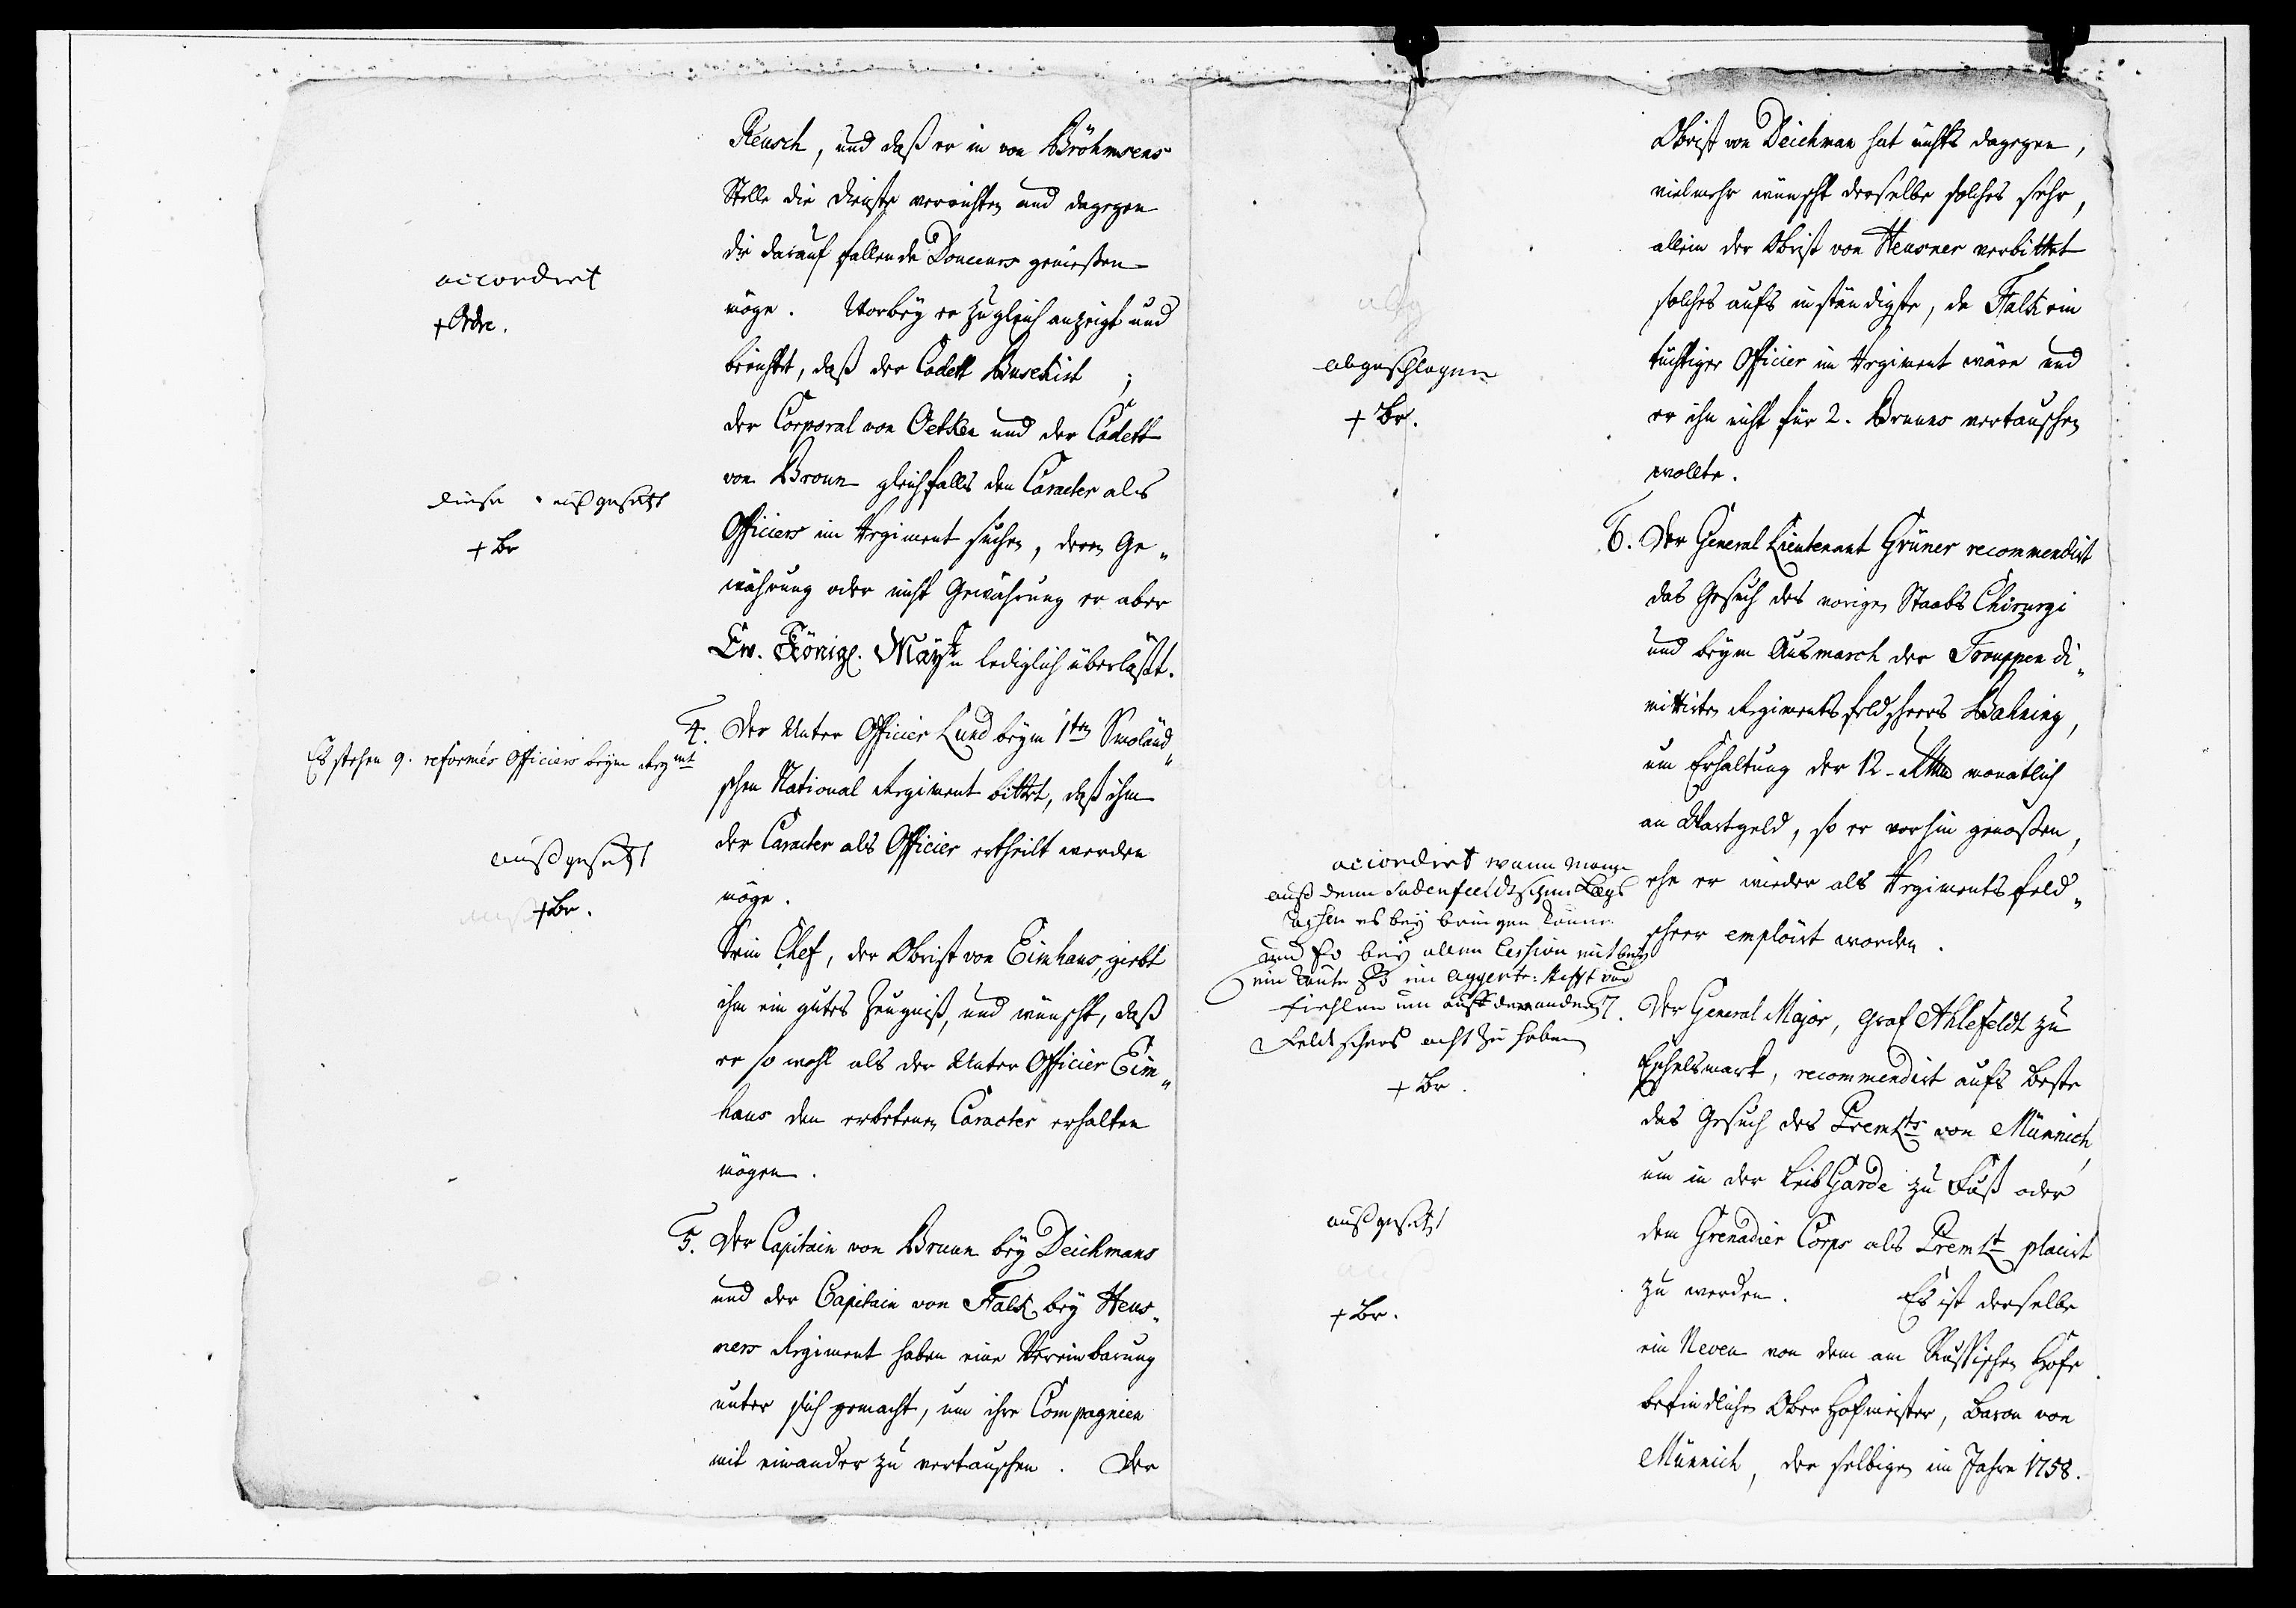 Reusch, und daß er in von Bröhmsens
Stelle die Dienste verrichten und dagegen
die darauf fallende Douceurs genießen
möge. Worbey er zugleich anzeigt und
berichtet, daß der Cadett Buschist ;
der Corporal von Oetken und der Cadett
von Broun gleichfalls den Caracter als
Officiers im Regiment suchen, deren Ge„
währung oder nicht Gewährung er aber
Ew. Königl. Mayt lediglich überläßt.
accordirt
+ Ordre.
diese ausgesetzt
+ Br
4. Der Unter Officier Lund beym 1ten Smoländ„
schen National Regiment bittet, daß ihm
der Caracter als Officier ertheilt werden
möge.
Sein Chef, der Obrist von Eimhaus, giebt
ihm ein gutes Zeugniß, und wünscht, daß
er so wohl als der Unter Officier Eim„
haus den erbetenen Caracter erhalten
mögen.
Es stehen 9. reformés Officiers beym Regmt
außgesetzt
+ Br.
5. Der Capitain von Bruun bey Deichmans
und der Capitain von Falck bey Heus„
ners Regiment haben eine Vereinbarung
unter sich gemacht, um ihre Compagnien
mit einander zu vertauschen. Der
Obrist von Deichman hat nichts dagegen,
vielmehr wünscht derselbe solches sehr,
allein der Obrist von Heusner verbittet
solches aufs inständigste, da Falck ein
tüchtiger Officier im Regiment wäre und
er ihn nicht für 2. Bruuns vertauschen
wollte.
abgeschlagen
+ Br.
6. Der General Lieutenant Grüner recommendirt
das Gesuch des vorigen Staabs Chirurgi
und beym Ausmarsch der Trouppen di„
mittirten Regimentsfeldscheers Balning,
um Erhaltung der 12 Rthlr monatlich
an Wartgeld, so er vorhin genoßen,
ehe er wieder als Regimentsfeld„
scheer emploirt worden.
accordirt wann mann
auß dem
es bey bringen könne
und bey allen
ein
um auff den anderen
Feldscheers acht zu haben
+ Br.
7. Der General Major, Graf Ahlefeldt zu
Eschelsmark, recommendirt aufs beste
das Gesuch des Premlts von Münnich,
um in der Leib Garde zu Fuß oder
dem Grenadier Corps als Premlt placirt
zu werden. Es ist derselbe
ein Neveu von dem am Russischen Hofe
befindlichen Ober Hofmeister, Baron von
Münnich, der selbigen im Jahre 1758.
außgesetzt
+ Br.